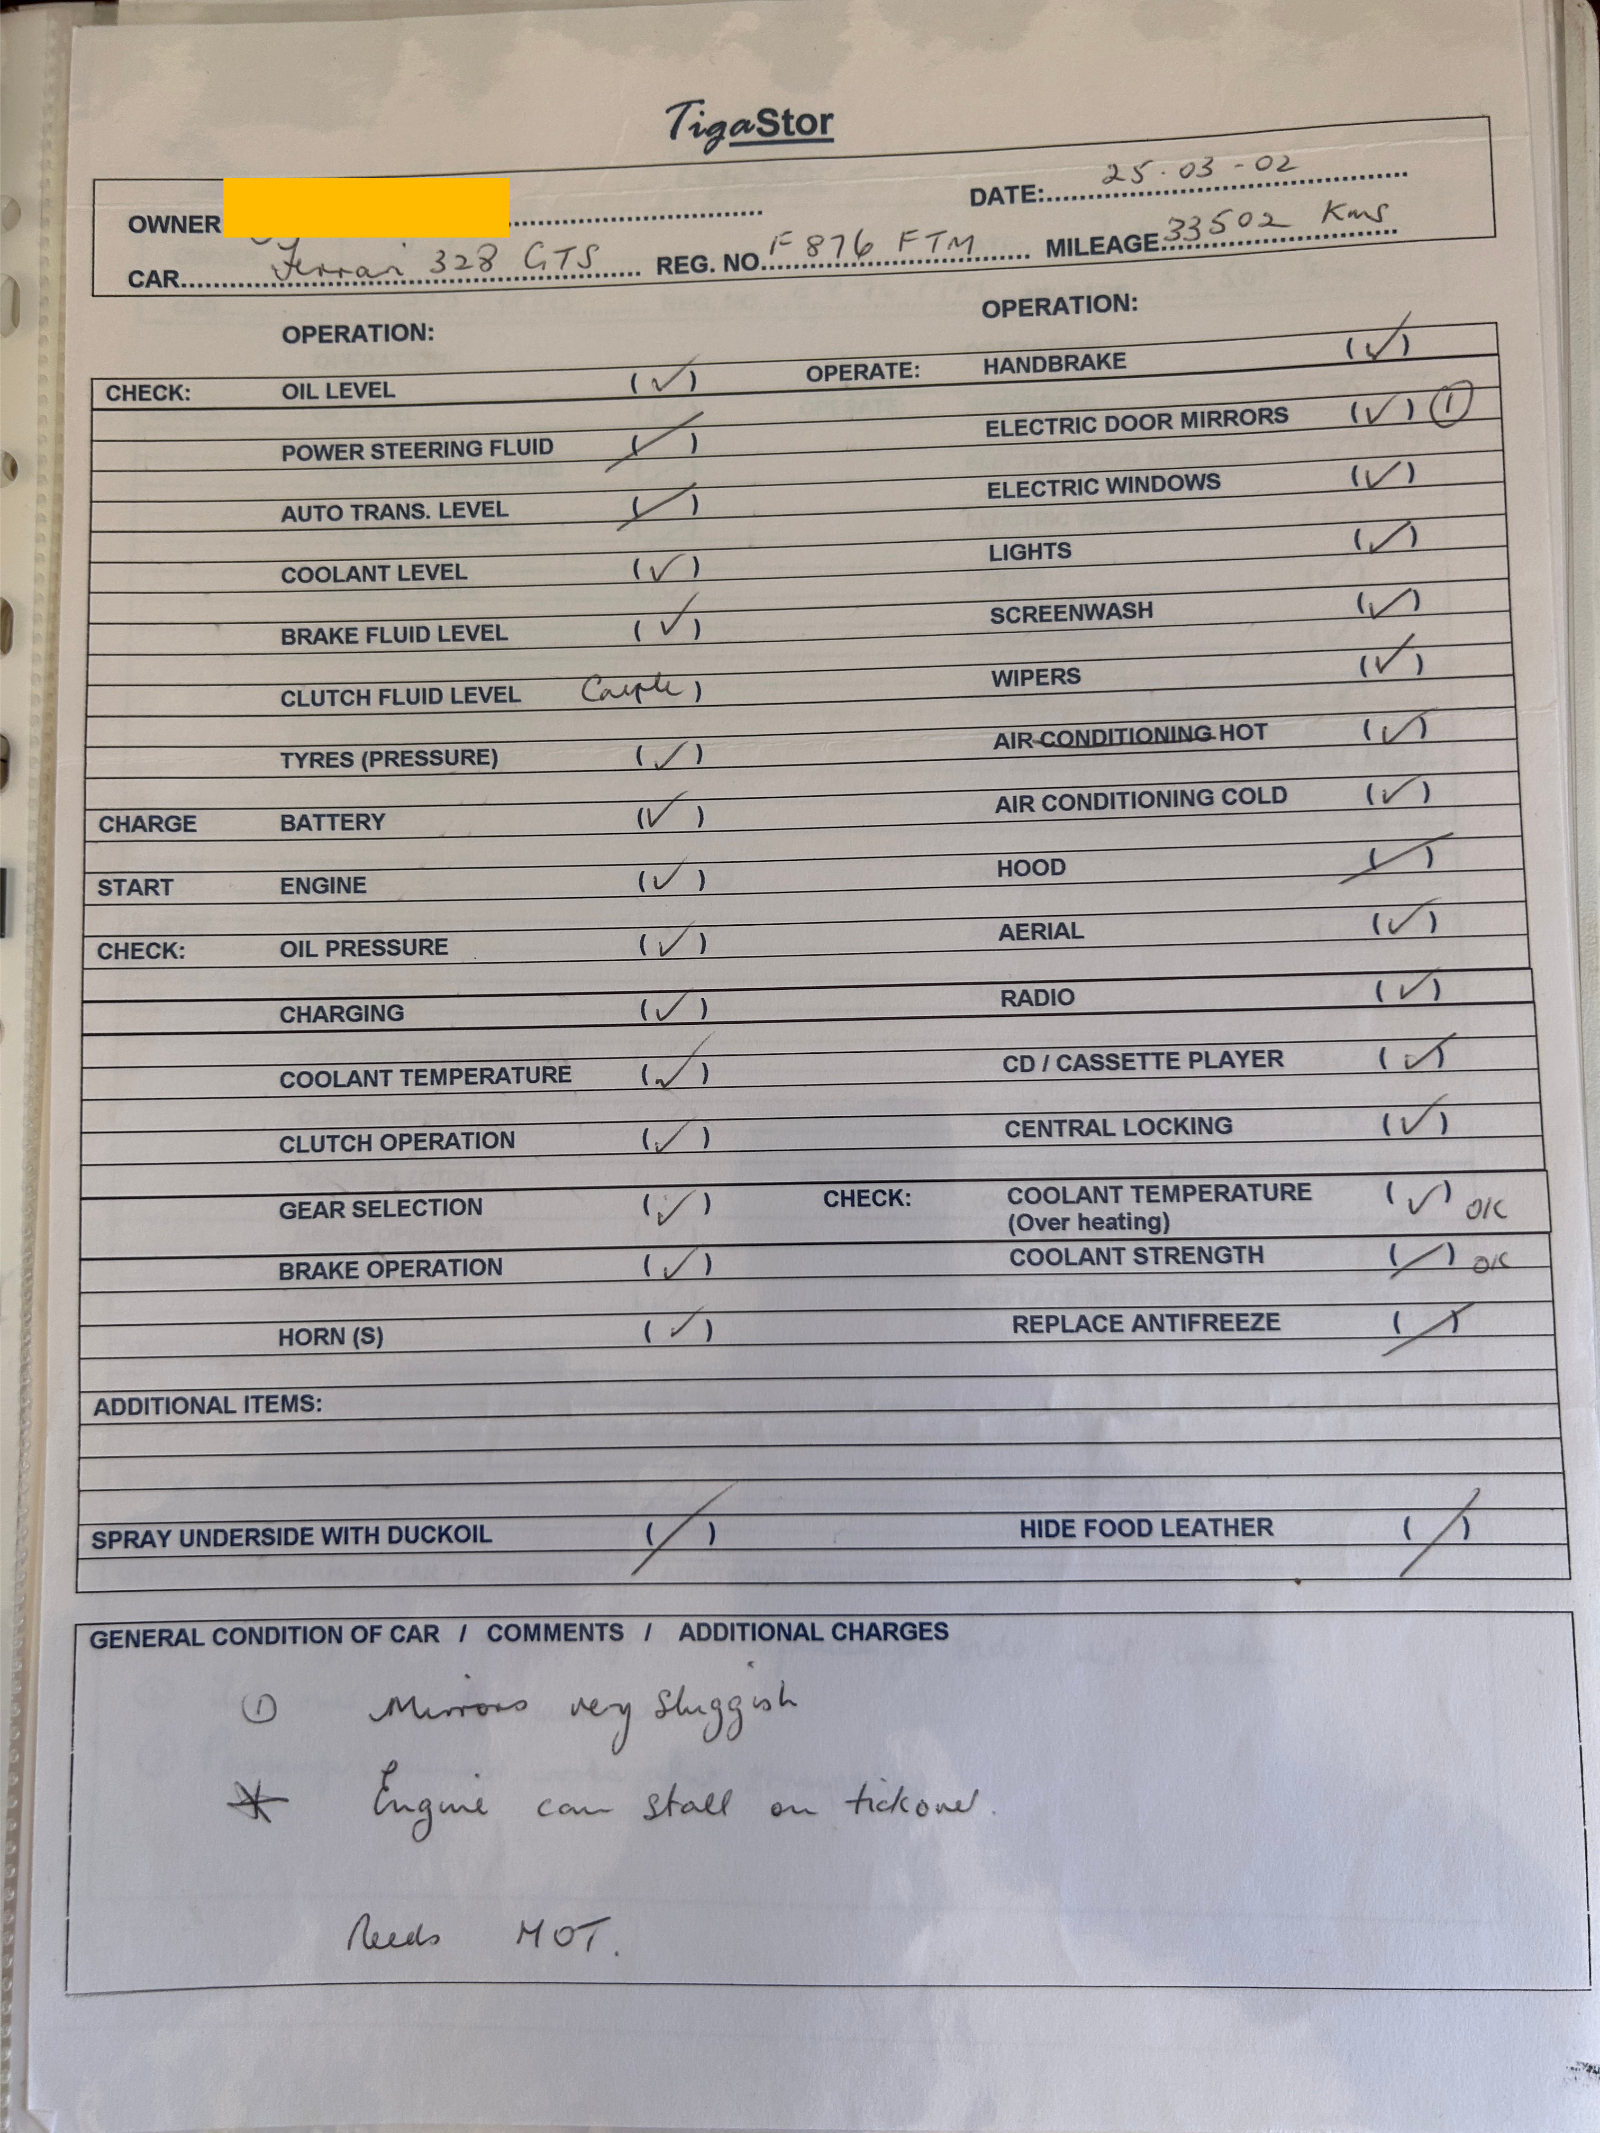 TigaStor
OWNER
DATE: 25.03-02
CAR Ferrari 328 GTS REG. NO. F876 FTM MILEAGE 33502 Kms
OPERATION: OPERATION:
CHECK: OIL LEVEL (✓) OPERATE: HANDBRAKE (✓)
POWER STEERING FLUID (/) ELECTRIC DOOR MIRRORS (✓) ①
AUTO TRANS. LEVEL (/) ELECTRIC WINDOWS (✓)
COOLANT LEVEL (✓) LIGHTS (✓)
BRAKE FLUID LEVEL (✓) SCREENWASH (✓)
CLUTCH FLUID LEVEL ) WIPERS (✓)
TYRES (PRESSURE) (✓) AIR CONDITIONING HOT (✓)
CHARGE BATTERY (✓) AIR CONDITIONING COLD (✓)
START ENGINE (✓) HOOD (/)
CHECK: OIL PRESSURE (✓) AERIAL (✓)
CHARGING (✓) RADIO (✓)
COOLANT TEMPERATURE (✓) CD / CASSETTE PLAYER (✓)
CLUTCH OPERATION (✓) CENTRAL LOCKING (✓)
GEAR SELECTION (✓) CHECK: COOLANT TEMPERATURE (✓) OK
(Over heating)
BRAKE OPERATION (✓) COOLANT STRENGTH (/) OK
HORN (S) (✓) REPLACE ANTIFREEZE (/)
ADDITIONAL ITEMS:
SPRAY UNDERSIDE WITH DUCKOIL (/) HIDE FOOD LEATHER (/)
GENERAL CONDITION OF CAR / COMMENTS / ADDITIONAL CHARGES
① Mirrors very sluggish
* Engine can stall on tickover.
Needs MOT.